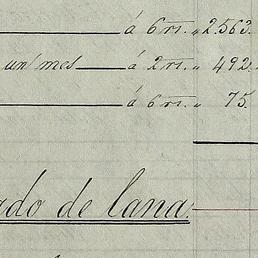 á 6 rs. „ 2.563.
un mes á 2 rs. „ 492.
á 6 rs. „ 75.
ado de lana.